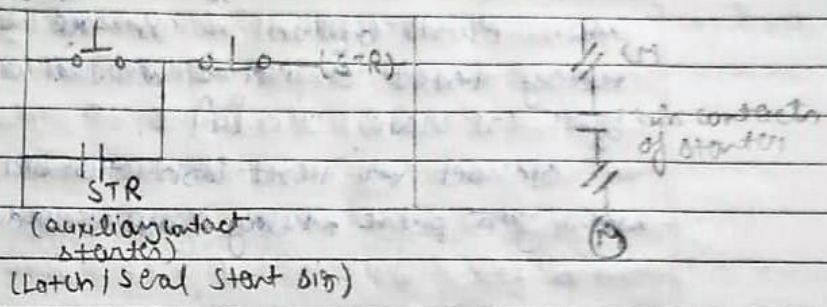 (STR)
STR
(auxiliary contact
starter)
(Latch / Seal Start sig)
contacts
of starter
M